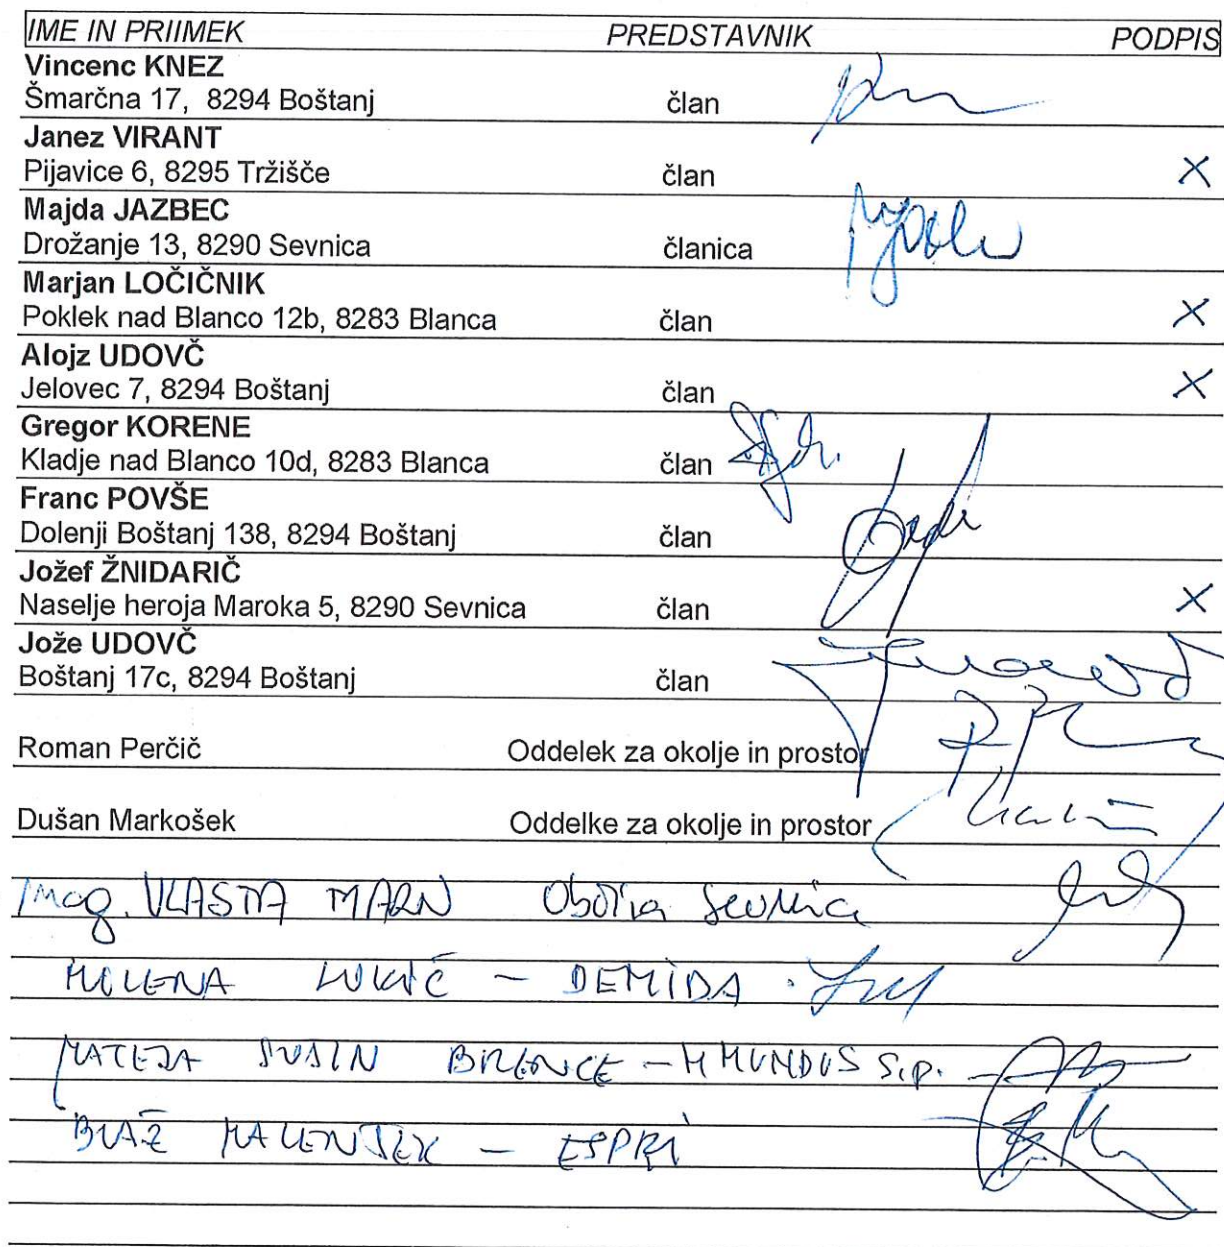 IME IN PRIIMEK PREDSTAVNIK PODPIS
Vincenc KNEZ
Šmarčna 17, 8294 Boštanj član
Janez VIRANT
Pijavice 6, 8295 Tržišče član X
Majda JAZBEC
Drožanje 13, 8290 Sevnica članica
Marjan LOČIČNIK
Poklek nad Blanco 12b, 8283 Blanca član X
Alojz UDOVČ
Jelovec 7, 8294 Boštanj član X
Gregor KORENE
Kladje nad Blanco 10d, 8283 Blanca član
Franc POVŠE
Dolenji Boštanj 138, 8294 Boštanj član
Jožef ŽNIDARIČ
Naselje heroja Maroka 5, 8290 Sevnica član X
Jože UDOVČ
Boštanj 17c, 8294 Boštanj član
Roman Perčič Oddelek za okolje in prostor
Dušan Markošek Oddelke za okolje in prostor
mag. VLASTA MARN Občina Sevnica
LUKIČ - DEMIDA
MATEJA BRENCE -
BLAŽ - ESPRI